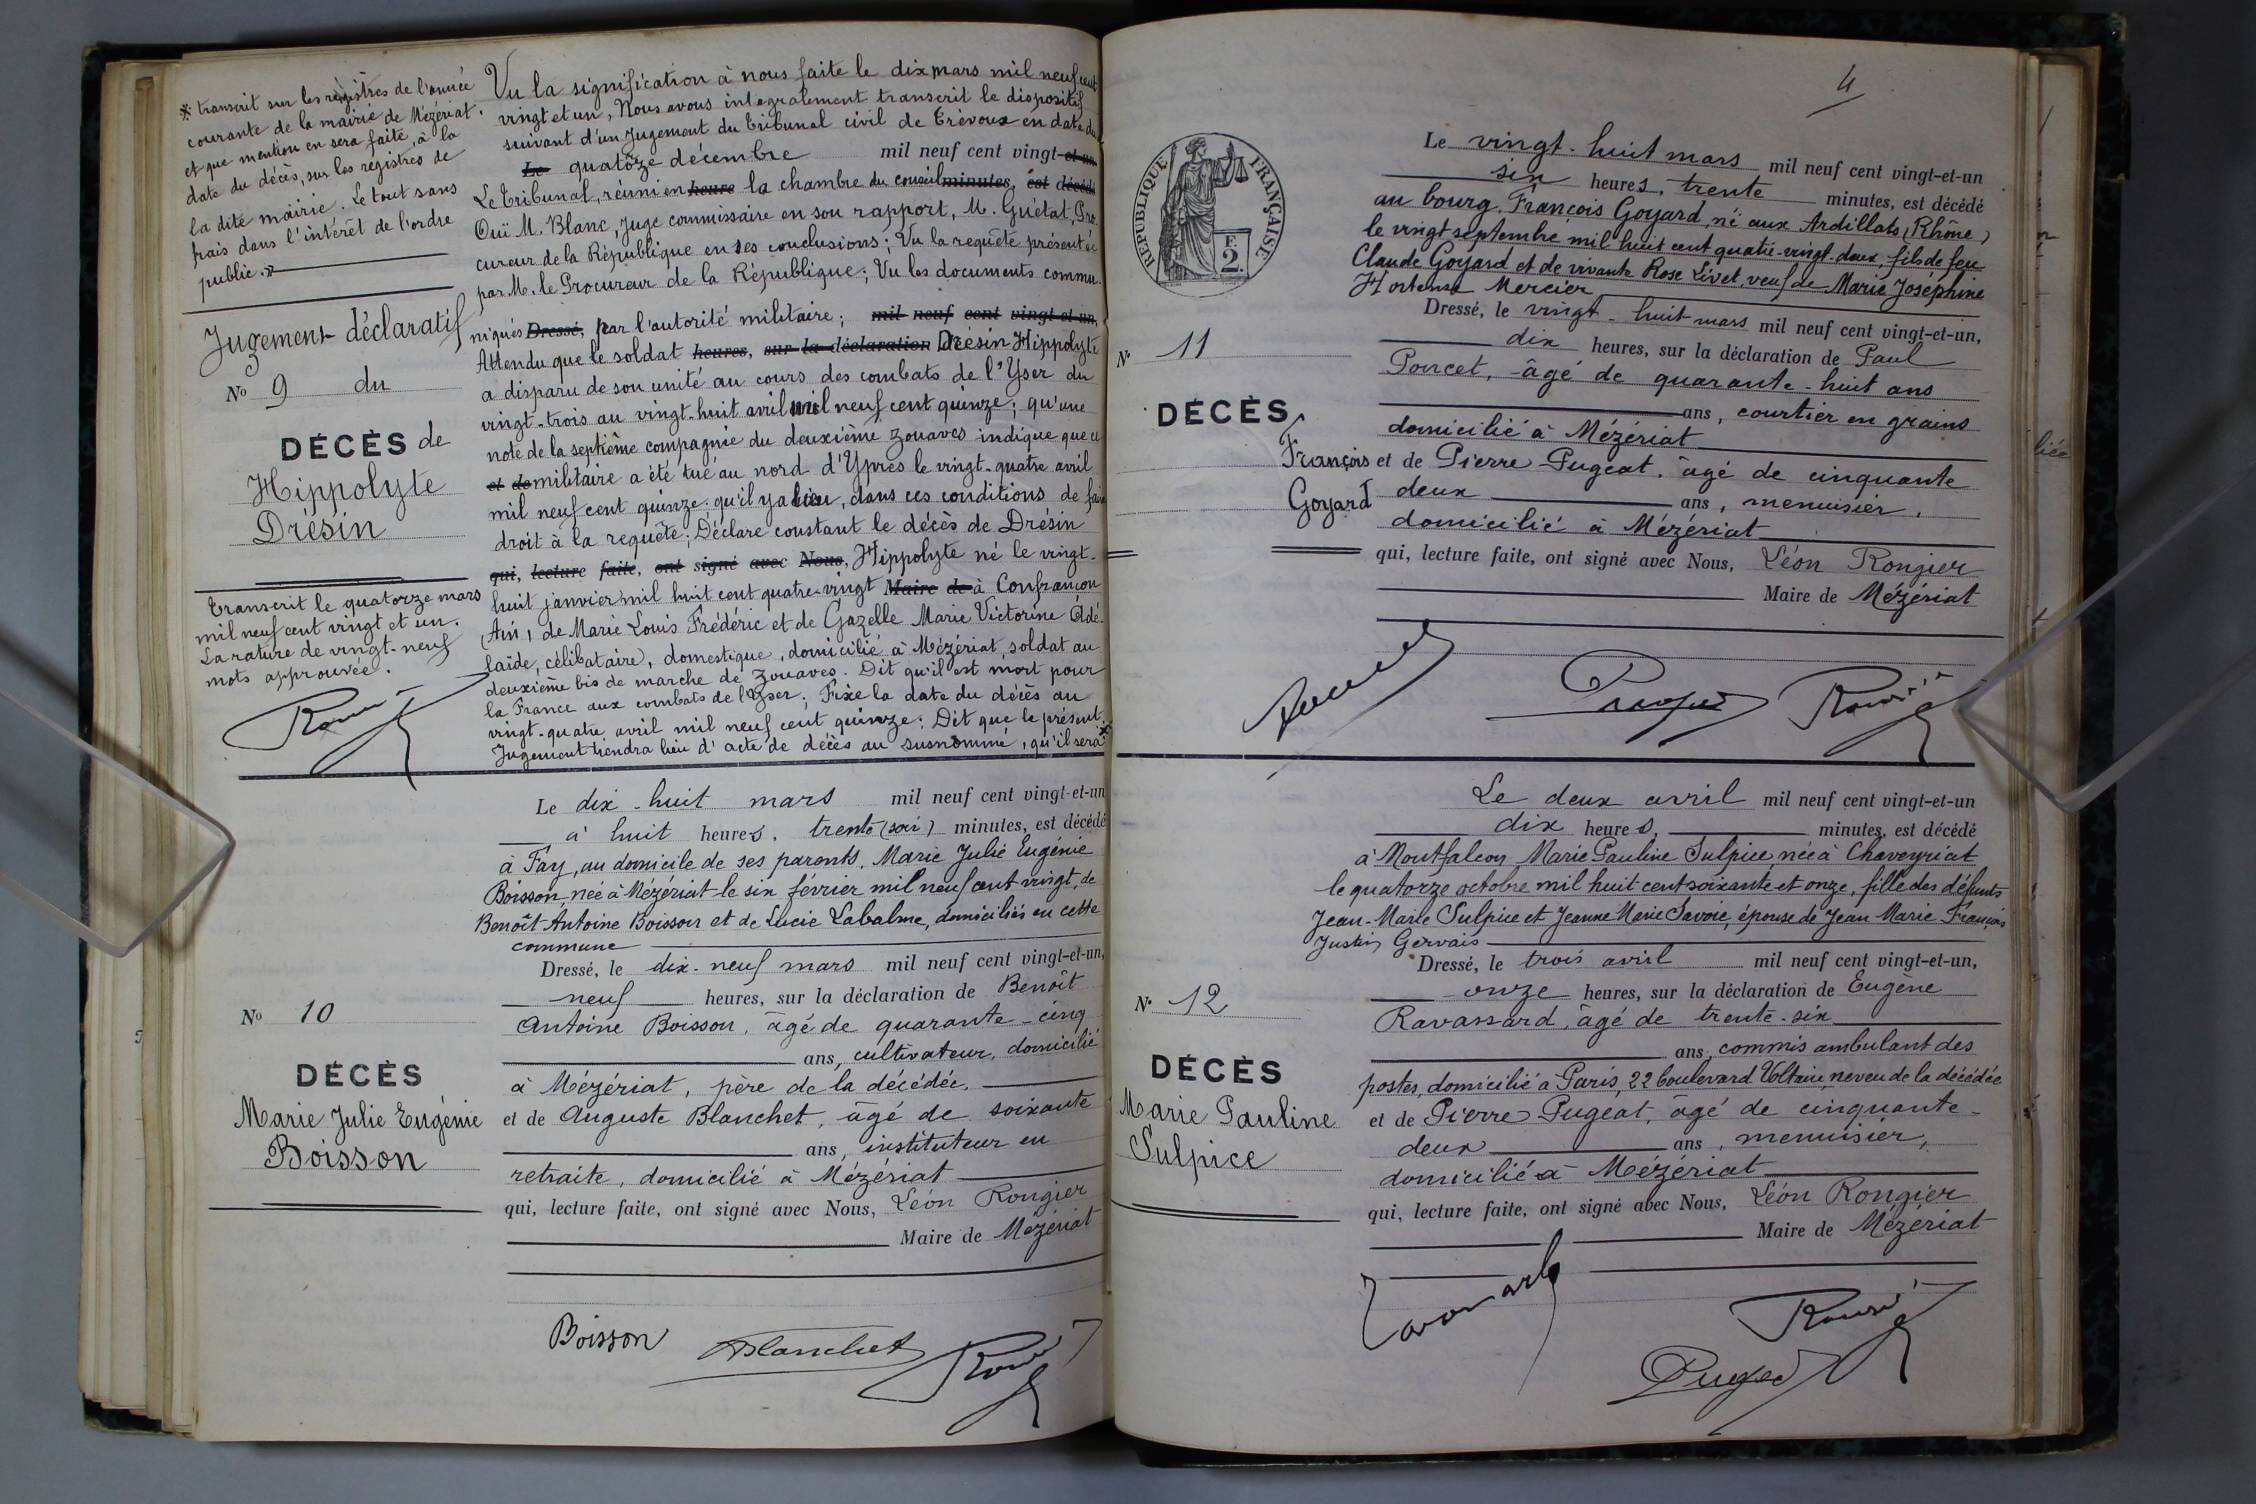 * transcrit sur les registres de l'année
courante de la mairie de Mézériat.
et que mention en sera faite, à la
date du décès, sur les registres de
la dite mairie. Le tout sans
frais dans l'intérêt de l'ordre
public.
Jugement déclaratif
No 9 du
DÉCÈS de
Hippolyte
Drésin
Transcrit le quatorze mars
mil neuf cent vingt et un.
La rature de vingt-neuf
mots approuvée.
Vu la signification à nous faite le dix mars mil neuf cent
vingt et un, Nous avons intégralement transcrit le dispositif
suivant d'un Jugement du Tribunal civil de Trévoux en date du
Le quatorze décembre mil neuf cent vingt-et-un
Le Tribunal, réuni en heure la chambre du conseil minutes, est décédé
Ouï M. Blanc, Juge commissaire en son rapport, M. Guétat, Pro
cureur de la République en ses conclusions; Vu la requête présentée
par M. le Procureur de la République; Vu les documents commu-
niqués Dressé, par l'autorité militaire; mil neuf cent vingt-et-un,
Attendu que le soldat heures, sur la déclaration Drésin Hippolyte
a disparu de son unité au cours des combats de l'Yser du
vingt-trois au vingt-huit avril mil neuf cent quinze; qu'une
note de la septième compagnie du deuxième zouaves indique que ce
et de militaire a été tué au nord d'Ypres le vingt-quatre avril
mil neuf cent quinze; qu'il y a lieu, dans ces conditions de faire
droit à la requête; Déclare constant le décès de Drésin
qui, lecture faite, ont signé avec Nous, Hippolyte né le vingt-
huit janvier mil huit cent quatre-vingt Maire de à Confrançon
(Ain), de Marie Louis Frédéric et de Gazelle Marie Victorine Adé-
laïde, célibataire, domestique, domicilié à Mézériat, soldat au
deuxième bis de marche de zouaves. Dit qu'il est mort pour
la France aux combats de l'Yser; Fixe la date du décès au
vingt-quatre avril mil neuf cent quinze; Dit que le présent
Jugement tiendra lieu d'acte de décès au susnommé, qu'il sera *
No 10
DÉCÈS
Marie Julie Eugénie
Boisson
Le dix-huit mars mil neuf cent vingt-et-un
à huit heures, trente (soir) minutes, est décédé
à Fay, au domicile de ses parents, Marie Julie Eugénie
Boisson, née à Mézériat le six février mil neuf cent vingt, de
Benoît Antoine Boisson et de Lucie Labalme, domiciliés en cette
commune
Dressé, le dix-neuf mars mil neuf cent vingt-et-un,
neuf heures, sur la déclaration de Benoît
Antoine Boisson, âgé de quarante-cinq
ans, cultivateur, domicilié
à Mézériat, père de la décédée,
et de Auguste Blanchet, âgé de soixante
ans, instituteur en
retraite, domicilié à Mézériat
qui, lecture faite, ont signé avec Nous, Léon Rongier
Maire de Mézériat
Boisson Blanchet
4
RÉPUBLIQUE FRANÇAISE
F.
2.
N° 11
DÉCÈS
François
Goyard
Le vingt-huit mars mil neuf cent vingt-et-un
six heures, trente minutes, est décédé
au bourg, François Goyard, né aux Ardillats (Rhône)
le vingt septembre mil huit cent quatre-vingt-deux, fils de feu
Claude Goyard et de vivante Rose Livet, veuf de Marie Joséphine
Hortense Mercier
Dressé, le vingt-huit mars mil neuf cent vingt-et-un,
dix heures, sur la déclaration de Paul
Poncet, âgé de quarante-huit ans
ans, courtier en grains
domicilié à Mézériat
et de Pierre Pugeat, âgé de cinquante
deux ans, menuisier,
domicilié à Mézériat
qui, lecture faite, ont signé avec Nous, Léon Rongier
Maire de Mézériat
N° 12
DÉCÈS
Marie Pauline
Sulpice
Le deux avril mil neuf cent vingt-et-un
dix heures, minutes, est décédé
à Montfalcon, Marie Pauline Sulpice née à Chaveyriat
le quatorze octobre mil huit cent soixante et onze, fille des défunts
Jean-Marie Sulpice et Jeanne Marie Savoie, épouse de Jean Marie François
Justin Gervais
Dressé, le trois avril mil neuf cent vingt-et-un,
onze heures, sur la déclaration de Eugène
Ravassard, âgé de trente-six
ans, commis ambulant des
postes, domicilié à Paris, 22 boulevard Voltaire, neveu de la décédée
et de Pierre Pugeat, âgé de cinquante-
deux ans, menuisier,
domicilié à Mézériat
qui, lecture faite, ont signé avec Nous, Léon Rongier
Maire de Mézériat